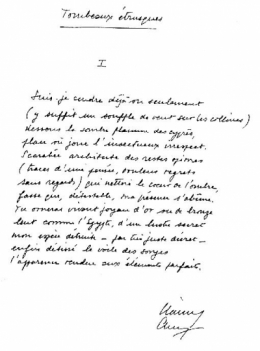 Tombeaux étrusques
I
Suis-je cendre déjà ou seulement
(y suffit un souffle de vent sur les collines)
dessous le sombre plumeau des cyprès,
place où joue l'insectueux irrespect.
Scarabée architecte des restes opimes
(traces d'une pensée, rouleux regrets
sans regards) qui nettoie le cœur de l'ombre,
fasse que, détestable, ma présence s'abîme.
Tu orneras vivant joyau d'or ou de bronze
lent comme l'Égypte, d'un lustre secret
mon espèce détruite — par toi juste décret —
enfin détissé le voile des songes
l'apparence rendue aux éléments parfaits.